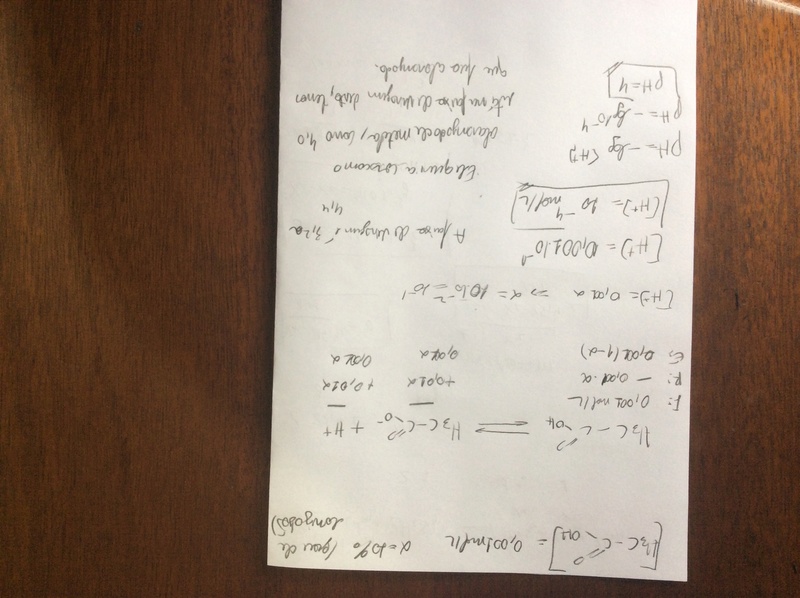 [H3C-C=O OH] = 0,001 mol/L α = 10% (grau de
ionização)
H3C - C=O OH ⇌ H3C - C=O O- + H+
I: 0,001 mol/L — —
R: - 0,001 · α +0,01α +0,01α
E: 0,001 (1-α) 0,001 α 0,001 α
[H+] = 0,001 α => α = 10.10^-2 = 10^-1
[H+] = 0,001.10^-1
[H+] = 10^-4 mol/L
A faixa de viragem é 3,2 a
4,4
pH = -log [H+]
pH = -log 10^-4
pH = 4
Ele quer a cor como
alaranjado de metila, como 4,0
está na faixa de viragem deste, temos
que fica alaranjado.